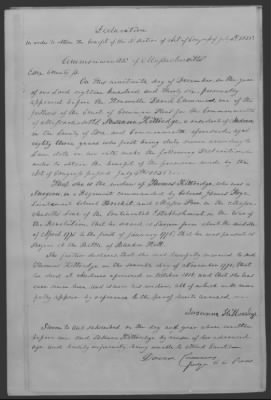 Declaration
In order to obtain the benefit of the 3d Section of Act of Congress of July 4th 1836.
Commonwealth of Massachusetts
Essex County ss.
On this nineteenth day of December in the year
of our Lord eighteen hundred and thirty six, personally
appeared before the Honorable David Cummins, one of the
Justices of the Court of Common Pleas for the Commonwealth
of Massachusetts, Susannah Kittredge, a resident of Andover
in the County of Essex and Commonwealth aforesaid, aged
eighty three years who first being duly sworn according to
Law doth on her oath make the following Declaration, in
order to obtain the benefit of the provision made by the
Act of Congress passed July 4th 1836:
That she is the widow of Thomas Kittredge, who was a
Surgeon in a Regiment commanded by Colonel James Frye,
Lieutenant Colonel Brickett and Major Poor in the Massa-
chusetts Line of the Continental Establishment in the War of
the Revolution, that he acted as Surgeon from about the middle
of April 1775 to the first of January 1776, that he was present as
Surgeon at the Battle of Bunker Hill.
She further declares that she was lawfully married to said
Thomas Kittredge in the month of November 1777, that
he died at Andover aforesaid in October 1818, and that she has
ever since been and is now his widow, all of which will more
fully appear by reference to the proof hereto annexed.
Susannah Kittredge
Sworn to and subscribed on the day and year above written
before me, said Susannah Kittredge by reason of her advanced
age and bodily infirmity being unable to attend Court.
David Cummins
Judge C. C. Pleas